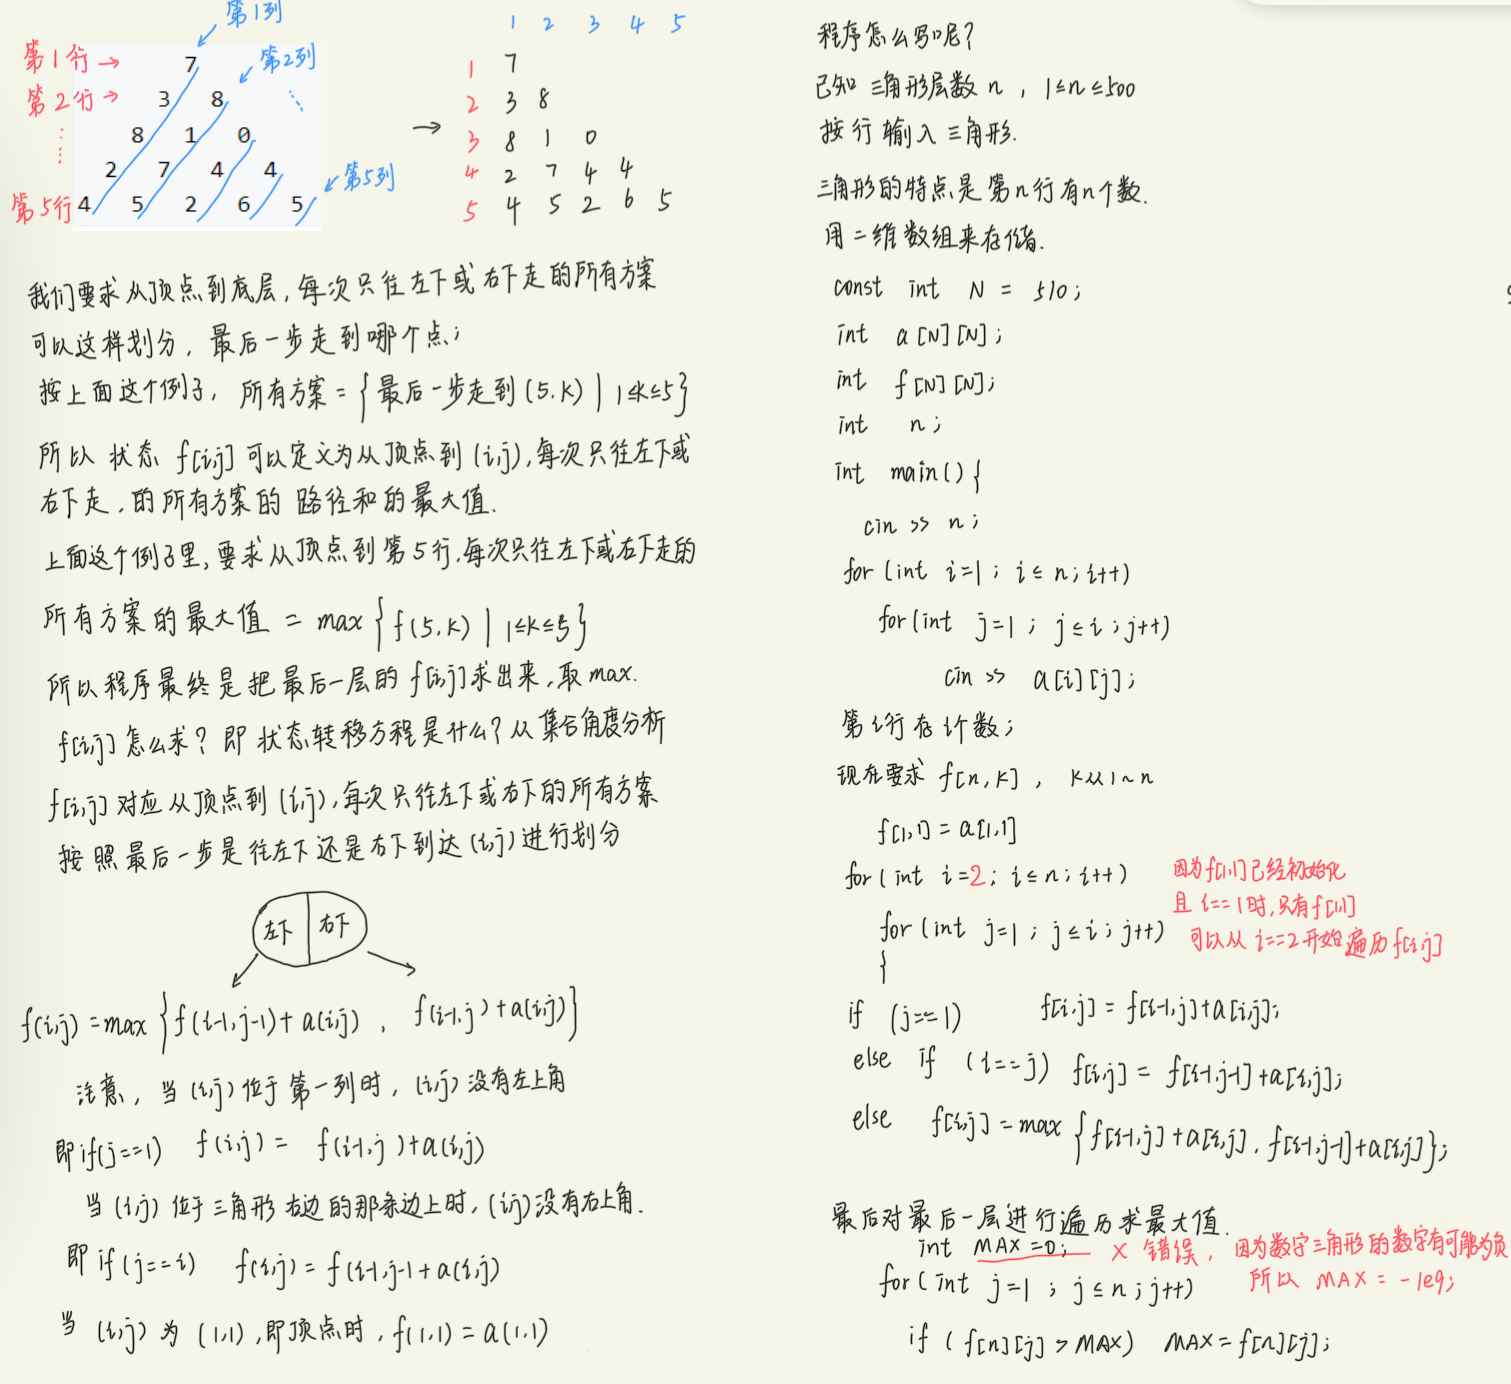 第1列
第1行→ 7 第2列
第2行→ 3 8
8 1 0
2 7 4 4
第5行 4 5 2 6 5 第5列
→
1 2 3 4 5
1 7
2 3 8
3 8 1 0
4 2 7 4 4
5 4 5 2 6 5
我们要求从顶点到底层,每次只往左下或右下走的所有方案
可以这样划分,最后一步走到哪个点;
按上面这个例子,所有方案={最后一步走到(5.k)|1≤k≤5}
所以 状态 f[i,j]可以定义为从顶点到(i,j),每次只往左下或
右下走,的所有方案的 路径和的最大值.
上面这个例子里,要求从顶点到第5行,每次只往左下或右下走的
所有方案的最大值 = max{f(5,k)|1≤k≤5}
所以程序最终是把最后一层的f[i,j]求出来,取max.
f[i,j]怎么求?即状态转移方程是什么?从集合角度分析
f[i,j]对应从顶点到(i,j),每次只往左下或右下的所有方案
按照最后一步是往左下还是右下到达(i,j)进行划分
左下 右下
f(i,j)=max{f(i-1,j-1)+a(i,j), f(i-1,j)+a(i,j)}
注意,当(i,j)位于第一列时,(i,j)没有左上角
即if(j==1) f(i,j)= f(i-1,j)+a(i,j)
当(i,j)位于三角形右边的那条边上时,(i,j)没有右上角.
即if(j==i) f(i,j)=f(i-1,j-1+a(i,j)
当 (i,j)为(1,1),即顶点时,f(1,1)=a(1,1)
程序怎么写呢?
已知三角形层数n,1≤n≤500
按行输入三角形.
三角形的特点是第n行有n个数.
用二维数组来存储.
const int N = 510;
int a[N][N];
int f[N][N];
int n;
int main(){
cin >> n;
for(int i=1; i≤n;i++)
for(int j=1; j≤i;j++)
cin >> a[i][j];
第i行存i个数;
现在要求 f[n,k], k从1~n
f[1,1]=a[1,1]
for(int i=2; i≤n;i++) 因为f[1,1]已经初始化
且i==1时,只有f[1,1]
for(int j=1; j≤i;j++) 可以从i==2开始遍历f[i,j]
{
if (j==1) f[i,j]=f[i-1,j]+a[i,j];
else if (i==j) f[i,j]= f[i-1,j-1]+a[i,j];
else f[i,j]=max{f[i-1,j]+a[i,j], f[i-1,j-1]+a[i,j]};
最后对最后一层进行遍历求最大值.
int MAX=0; × 错误,因为数字三角形的数字有可能为负
所以 MAX=-1e9;
for(int j=1; j≤n;j++)
if (f[n][j]>MAX) MAX=f[n][j];